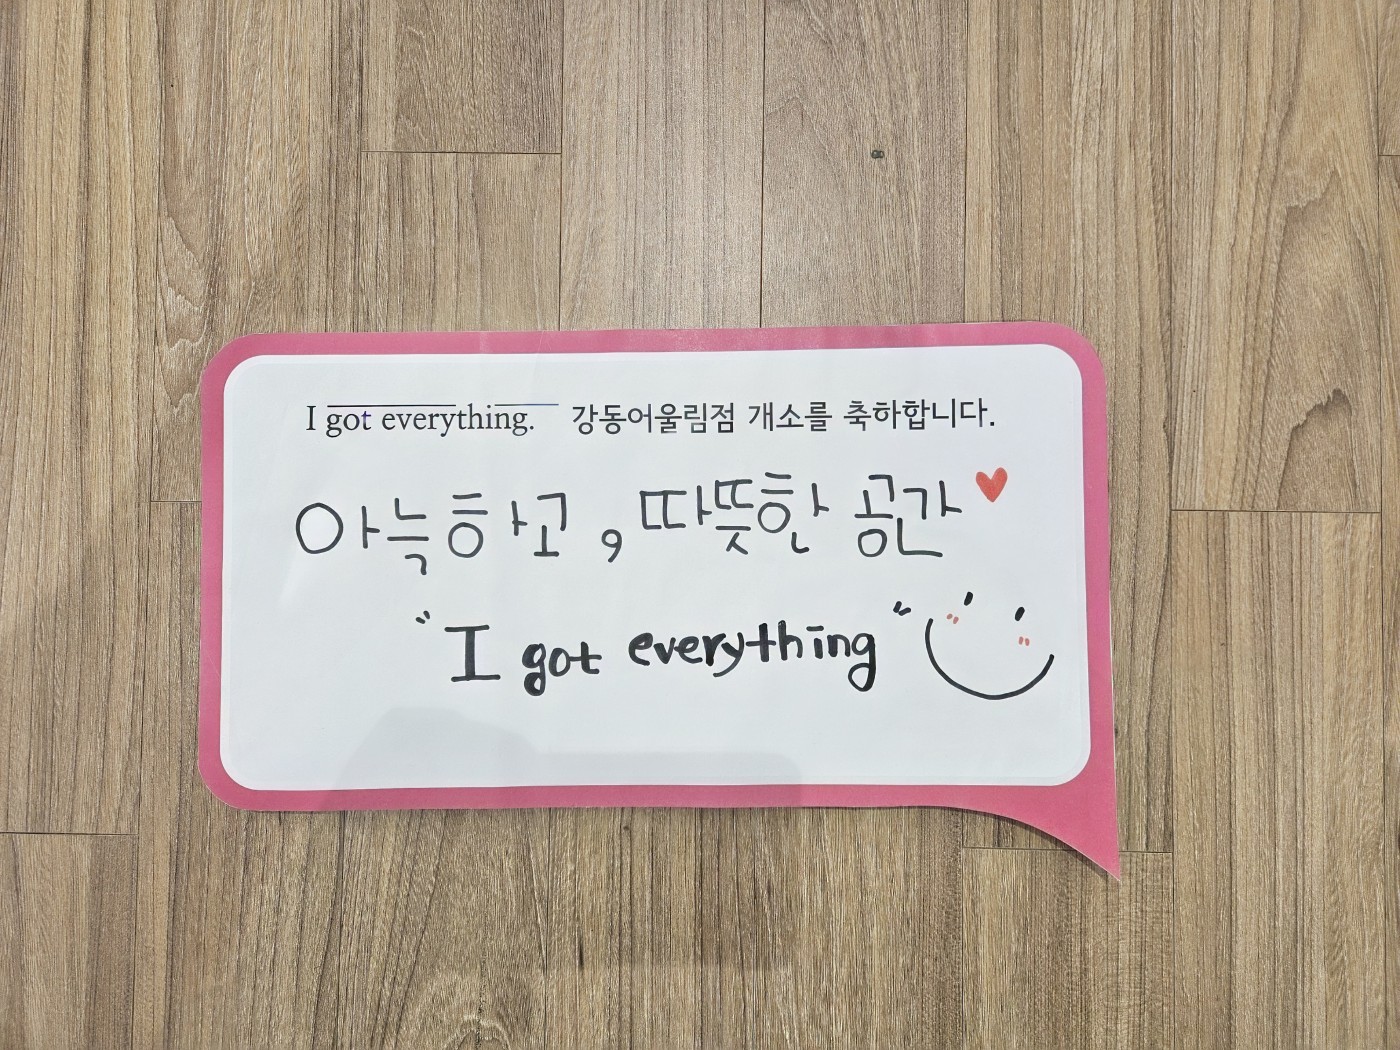 I got everything. 강동어울림점 개소를 축하합니다.
아늑하고, 따뜻한 공간
"I got everything"